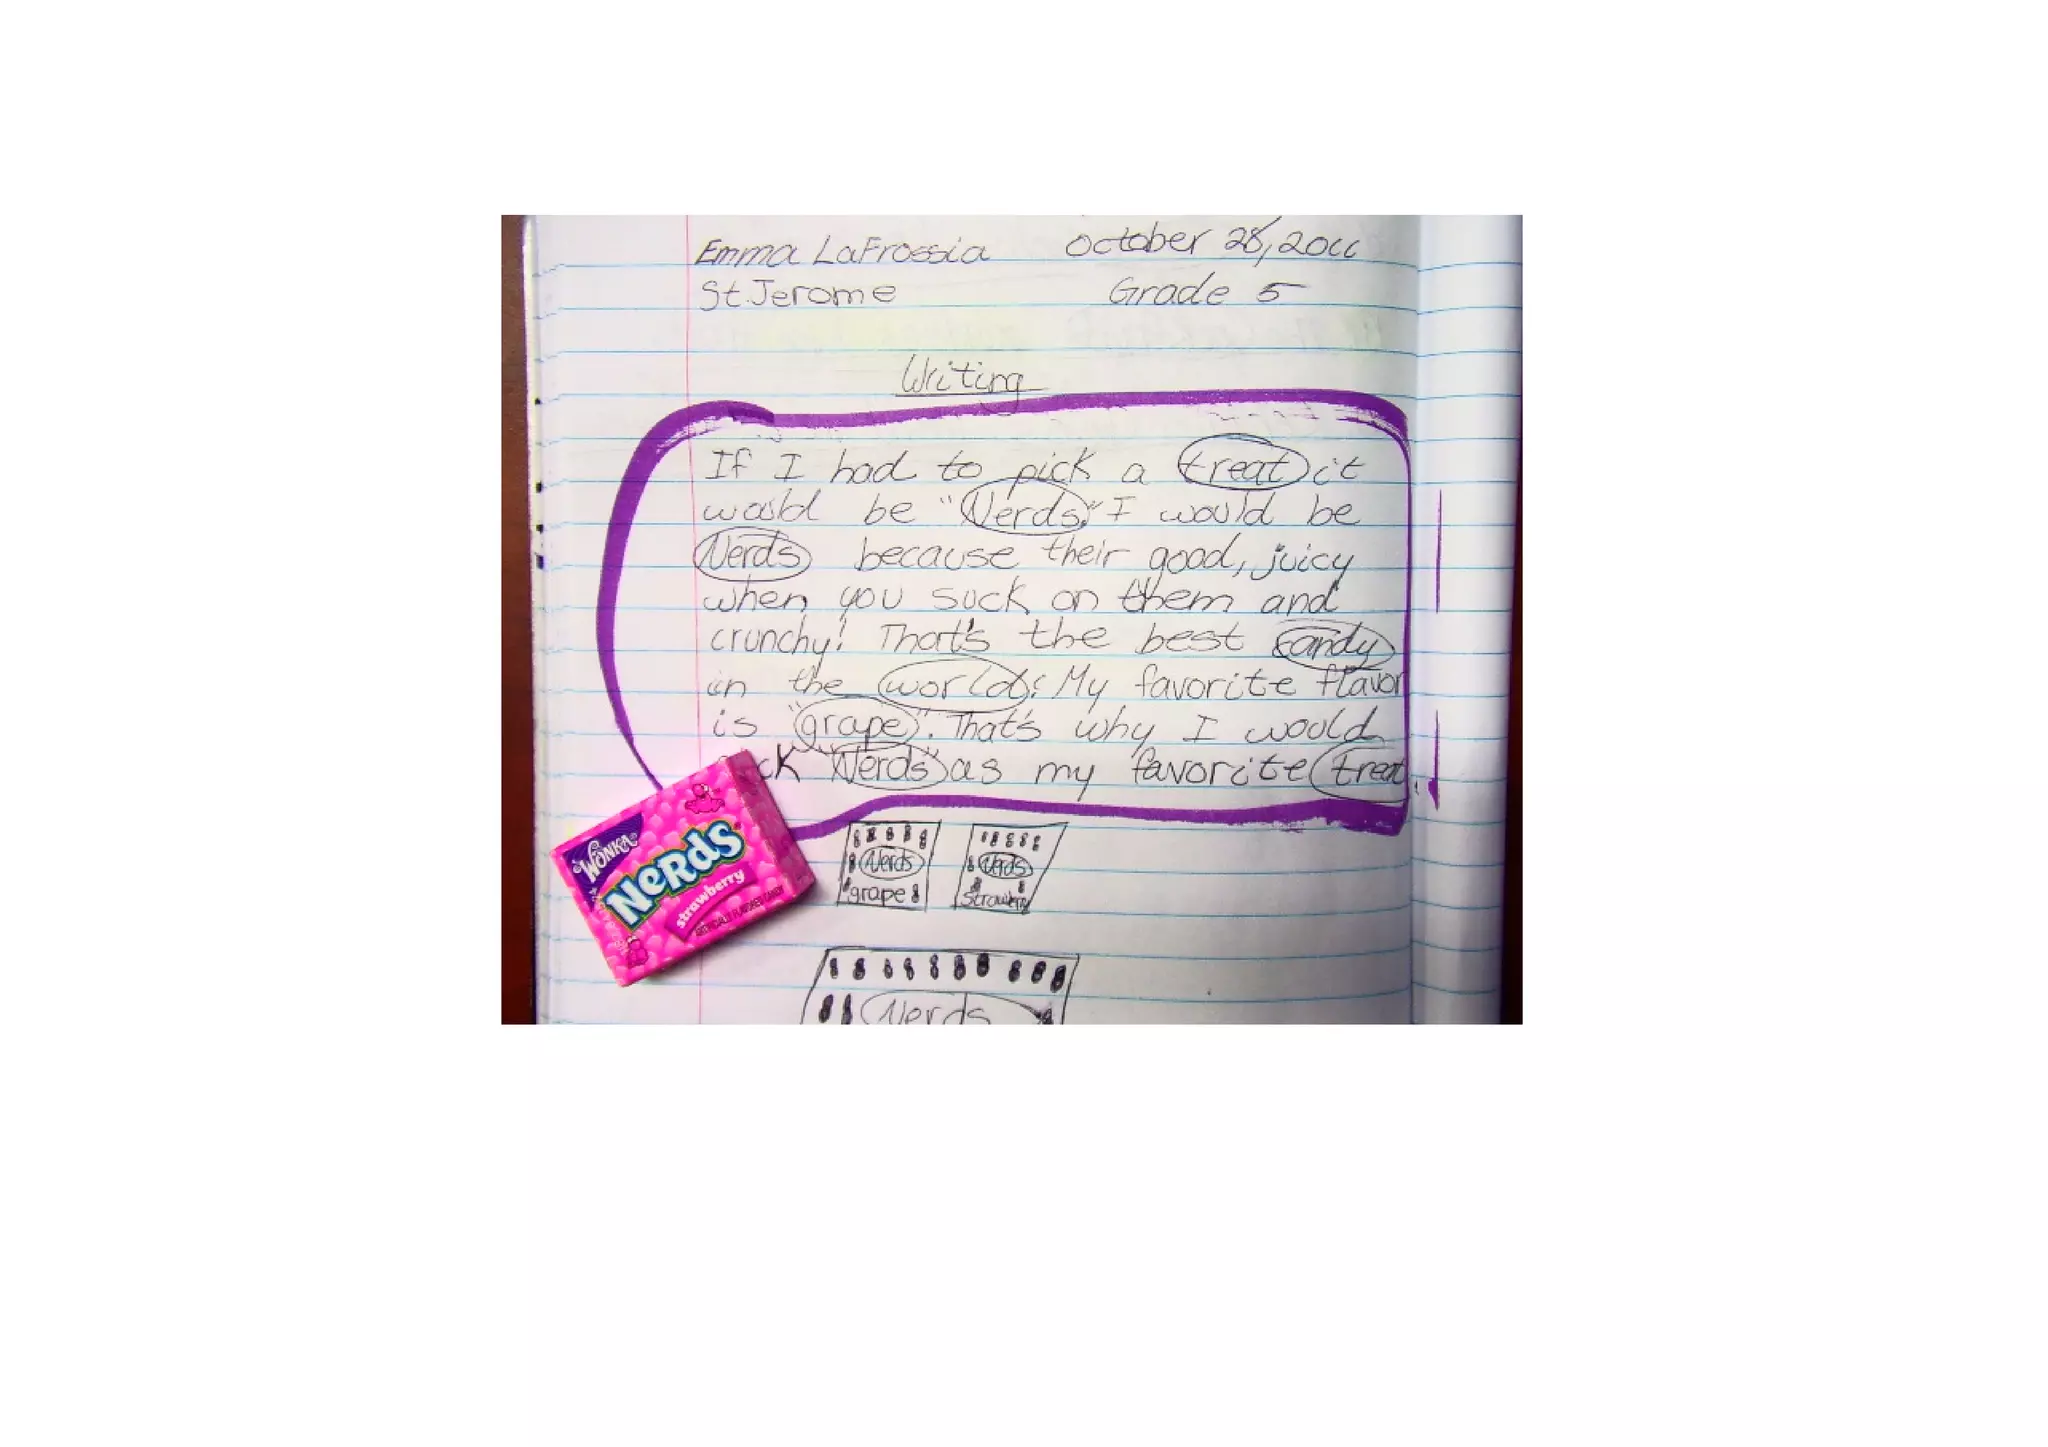 Emma LaFrossia October 28, 2011
St. Jerome Grade 5
Writing
If I had to pick a treat it
would be "Nerds." I would be
Nerds because their good, juicy
when you suck on them and
crunchy! That's the best candy
in the world! My favorite flavor
is "grape". That's why I would
ck "Nerds" as my favorite treat.
WONKA
NERDS
strawberry
ARTIFICIALLY FLAVORED CANDY
Nerds
grape
Nerds
Strawberry
Nerds